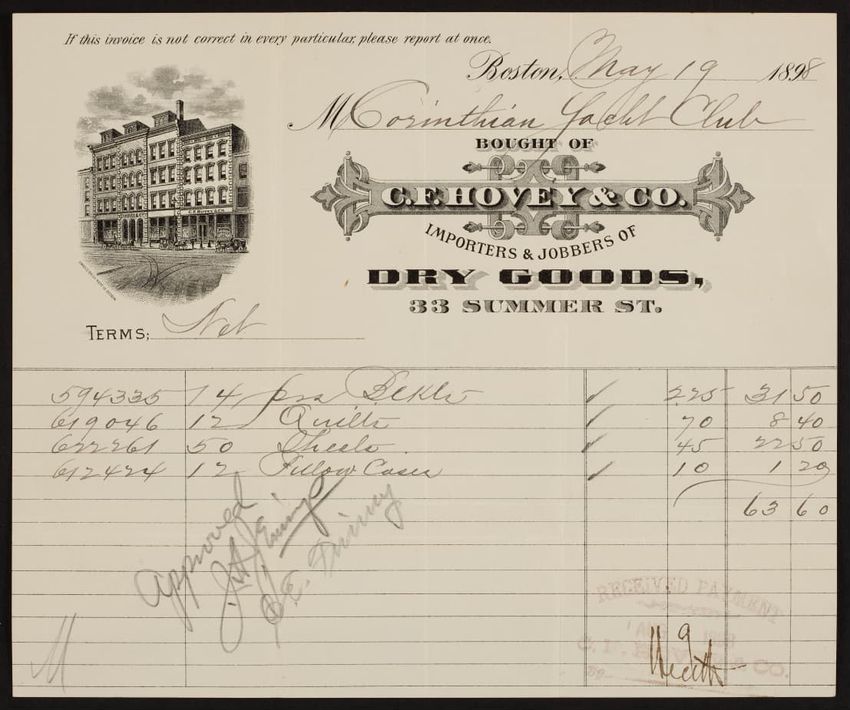 If this invoice is not correct in every particular, please report at once.
Boston, May 19 1898
M Corinthian Yacht Club
BOUGHT OF
C.F. HOVEY & CO.
IMPORTERS & JOBBERS OF
DRY GOODS,
33 SUMMER ST.
TERMS; Net
594335 14 prs Bkts 225 31 50
619046 12 Quilts 70 8 40
622261 50 Sheets 45 22 50
612424 12 Pillow Cases 10 1 20
63 60
Approved
RECEIVED PAYMENT
C. F. HOVEY & CO.
M